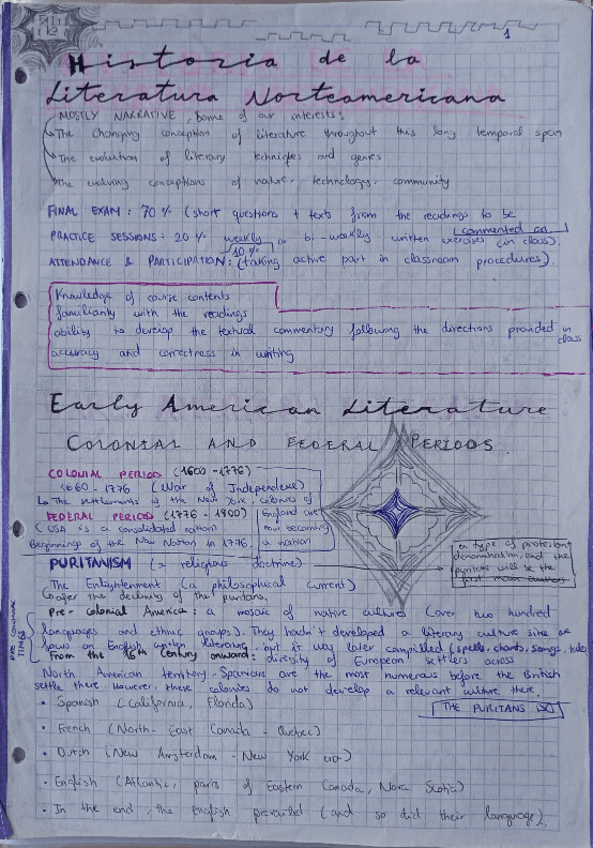 1
Historia de la
Literatura Norteamericana
MOSTLY NARRATIVE, Some of our interests:
The changing conception of literature throughout this long temporal span
The evolution of literary techniques and genres
The evolving conceptions of nature, technology, community
FINAL EXAM: 70% (short questions + texts from the readings to be commented on)
PRACTICE SESSIONS: 20% weekly or bi-weekly written exercises (in class).
ATTENDANCE & PARTICIPATION: 10% (taking active part in classroom procedures).
Knowledge of course contents
familiarity with the readings
ability to develop the textual commentary following the directions provided in class
accuracy and correctness in writing
Early American Literature
COLONIAL AND FEDERAL PERIODS.
COLONIAL PERIOD (1600-1776)
1660-1776 (War of Independence)
The settlements of the New York colonies of
England are now becoming a nation
FEDERAL PERIOD (1776-1800)
(USA is a consolidated nation)
Beginnings of the New Nation in 1776.
PURITANISM (a religious doctrine)
a type of protestant denomination, and the puritans will be the first main
The Enlightenment (a philosophical current)
after the declining of the puritans.
PRE COLONIAL TIMES
Pre-colonial America: a mosaic of native cultures (over two hundred
languages and ethnic groups). They hadn't developed a literary culture
focus on English literature, but it was later compilled (spells, chants, songs, tales
From the 16th Century onward: diversity of European settlers across
North American territory. Spaniards are the most numerous before the British
settle there. However, these colonies do not develop a relevant culture there.
THE PURITANS DO
• Spanish (California, Florida)
• French (North-East Canada - Quebec)
• Dutch (New Amsterdam - New York era)
• English (Atlantic, parts of Eastern Canada, Nova Scotia)
• In the end, the English prevailed (and so did their language).